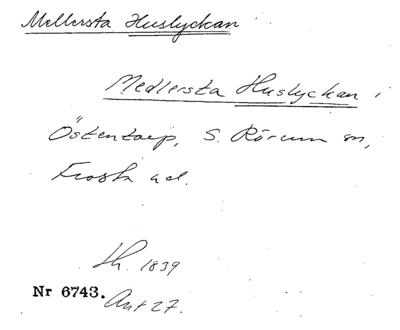 Mellersta Huslyckan
Medlersta Huslyckan i
Östentorp, S. Rörum sn,
Frosta hd.
Lh. 1839
Nr 6743. Ant 27.